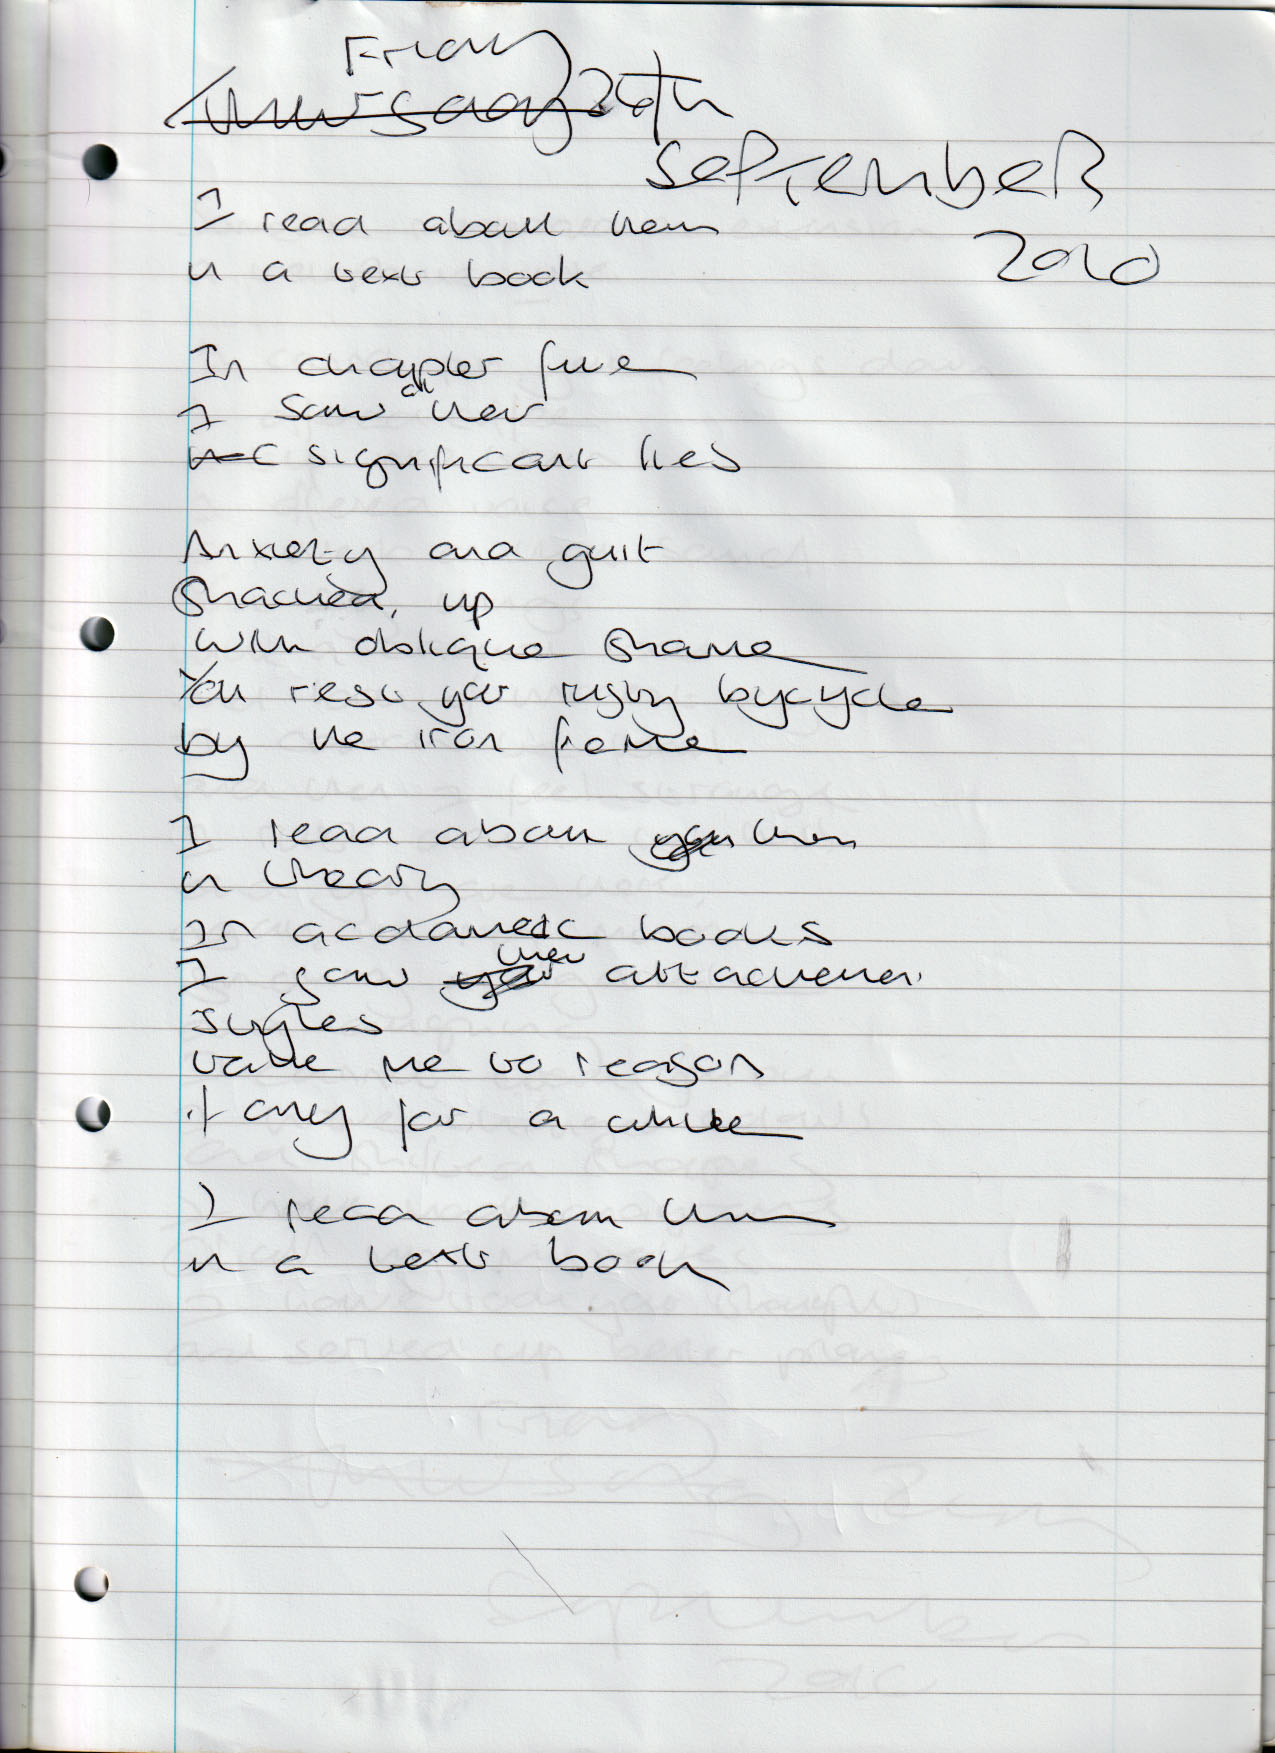 Friday
Thursday 24th
September
2010
I read about them
in a text book
In chapter five
I saw all their
significant lies
Anxiety and guilt
Shacked, up
with oblique shame
You rest your rusty bycycle
by the iron frame
I read about you them
in theory
In acdameic books
I saw your their attachment
styles
take me to reason
if only for a while
I read about them
in a text book